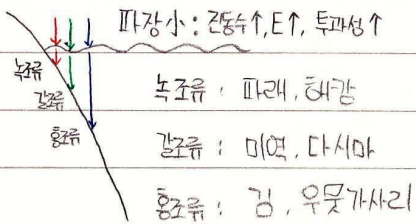 파장小: 진동수↑, E↑, 투과성↑
녹조류
갈조류
홍조류
녹조류 : 파래, 해캄
갈조류 : 미역, 다시마
홍조류 : 김, 우뭇가사리